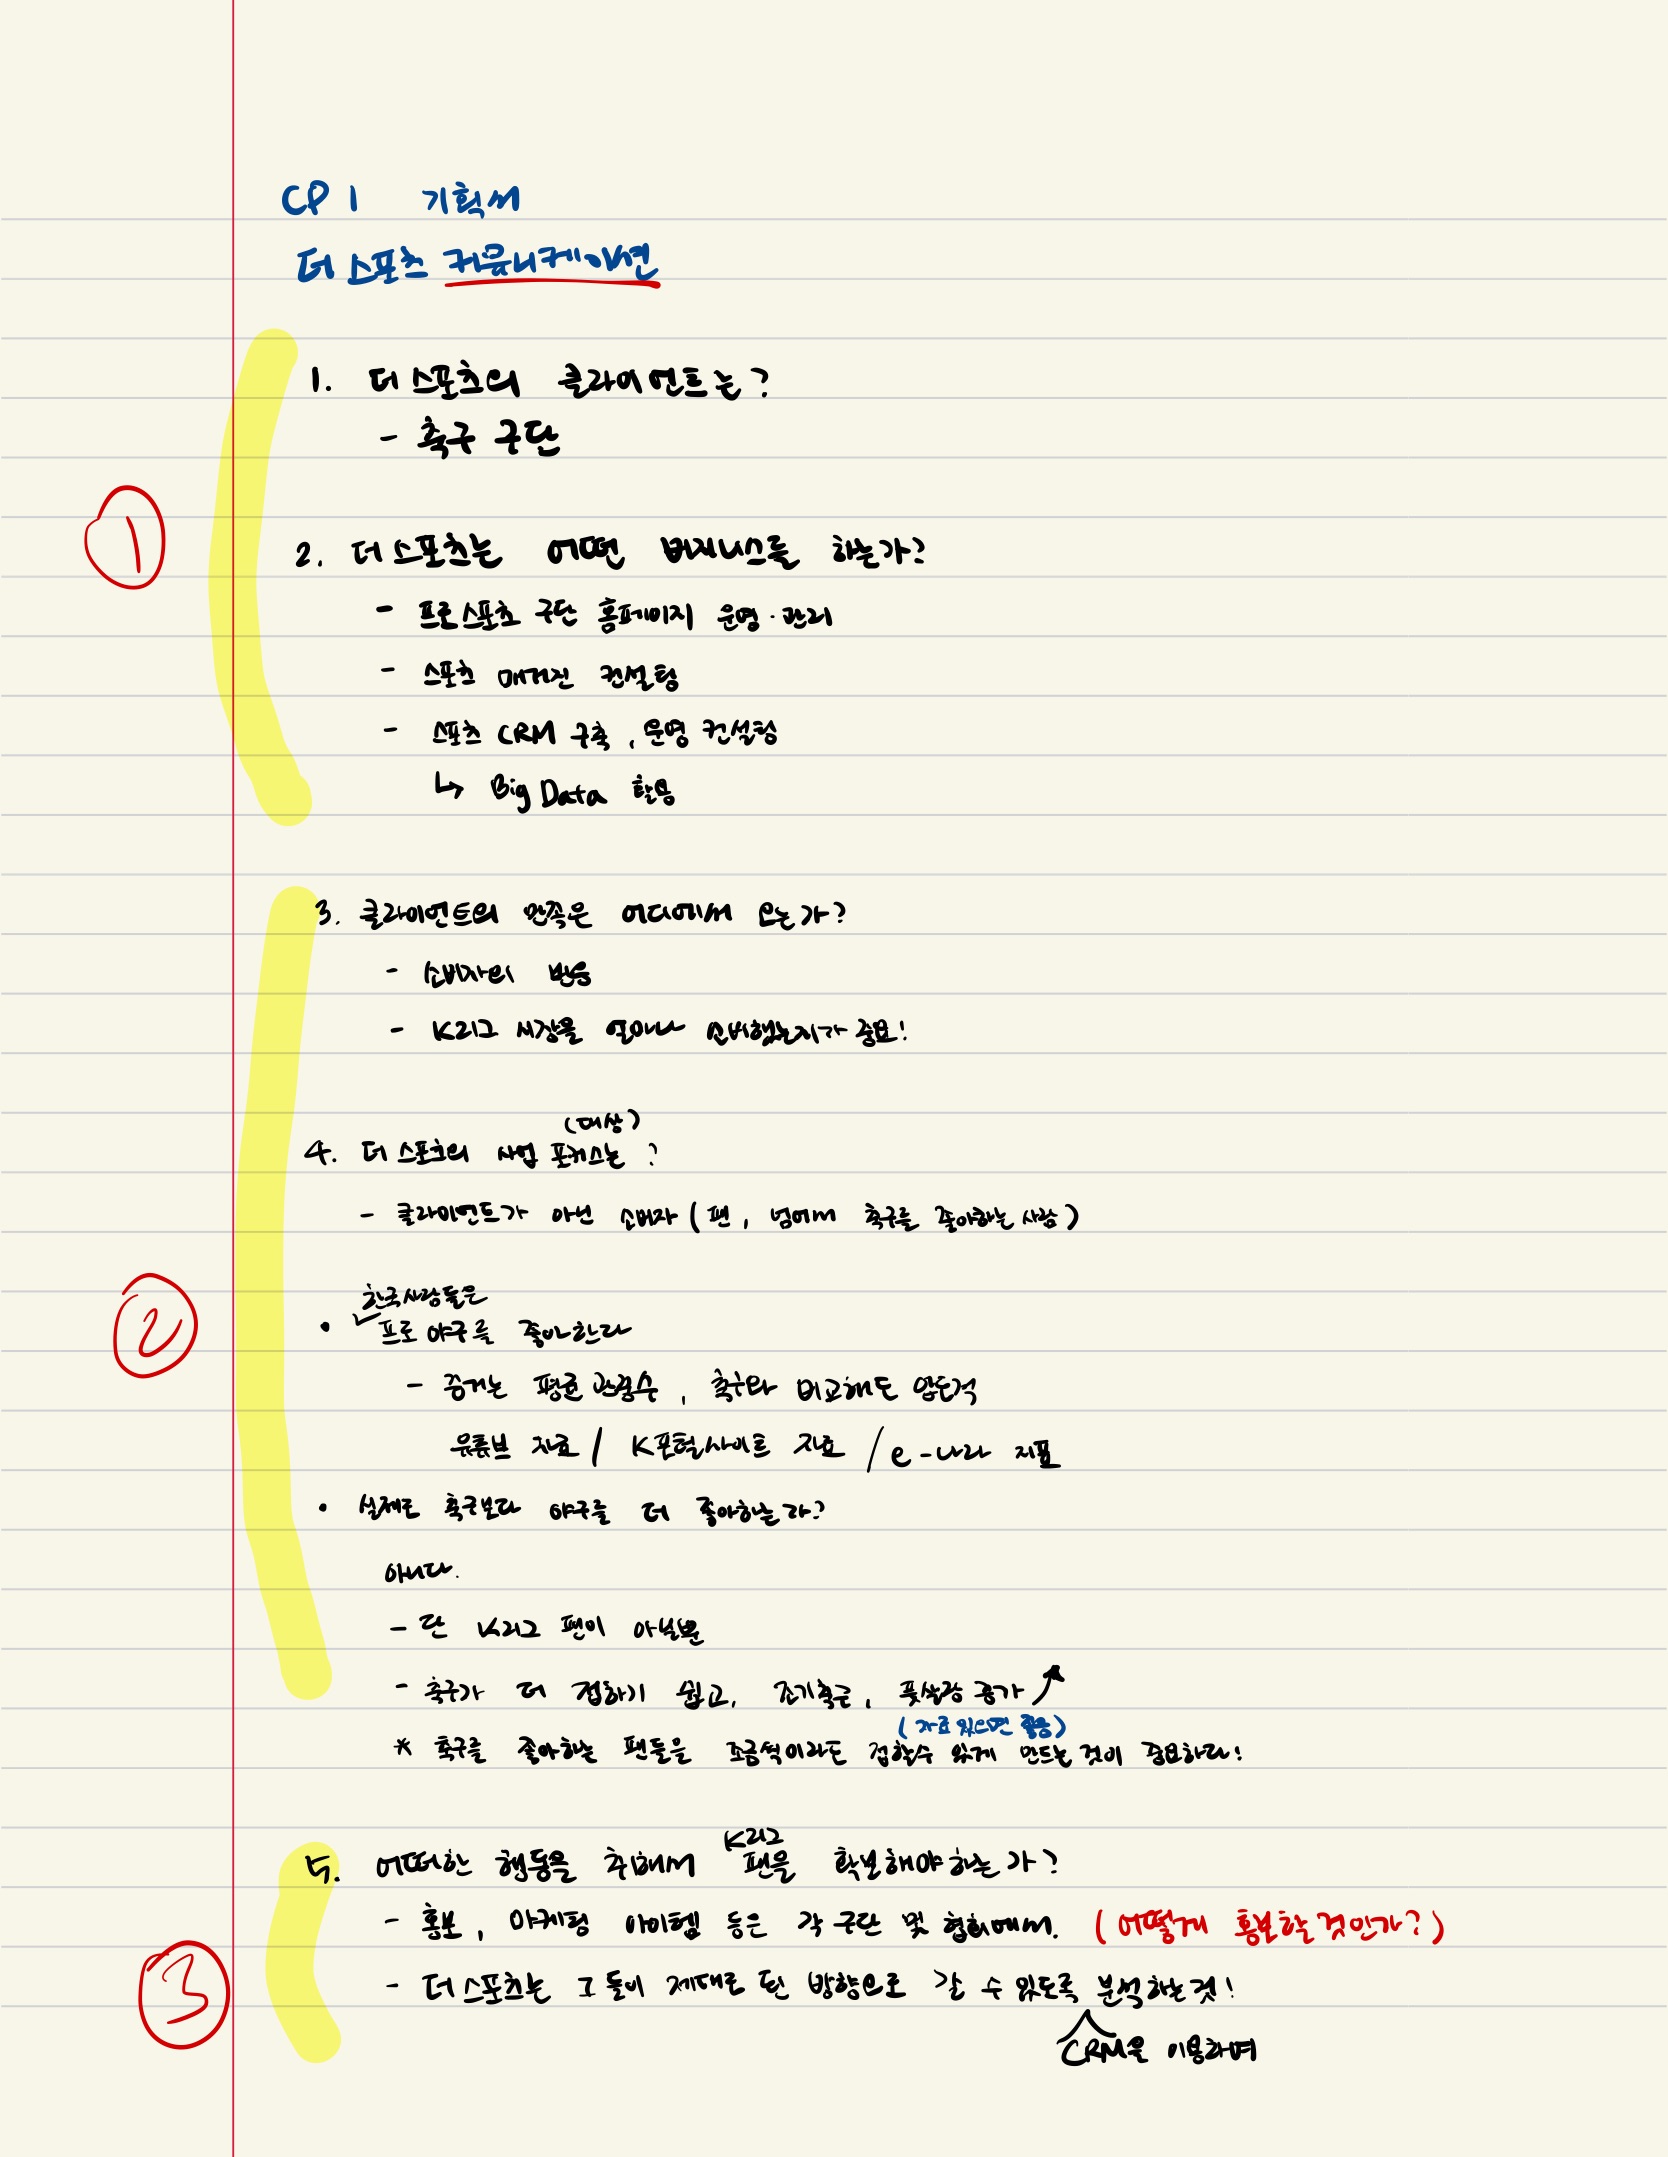 CP 1 기획서
더 스포츠 커뮤니케이션
1. 더 스포츠의 클라이언트는?
- 축구 구단
①
2. 더 스포츠는 어떤 비지니스를 하는가?
- 프로스포츠 구단 홈페이지 운영·관리
- 스포츠 매거진 컨설팅
- 스포츠 CRM 구축, 운영 컨설팅
↳ Big Data 활용
3. 클라이언트의 만족은 어디에서 오는가?
- 소비자의 반응
- K리그 시장을 얼마나 소비했는지가 중요!
(대상)
4. 더 스포츠의 사업 포커스는?
- 클라이언트가 아닌 소비자 (팬, 넘어서 축구를 좋아하는 사람)
②
한국사람들은
• 프로야구를 좋아한다
- 증거는 평균 관중수, 축구와 비교해도 압도적
유튜브 자료 / K포털사이트 자료 / e-나라 지표
• 실제로 축구보다 야구를 더 좋아하는가?
아니다.
- 단 K리그 팬이 아닐뿐
- 축구가 더 접하기 쉽고, 조기축구, 풋살장 증가 ↗
(자료 있으면 좋음)
* 축구를 좋아하는 팬들을 조금씩이라도 접할수 있게 만드는 것이 중요하다!
K리그
5. 어떠한 행동을 취해서 팬을 확보해야하는가?
- 홍보, 마케팅 아이템 등은 각 구단 및 협회에서. (어떻게 홍보할것인가?)
③
- 더 스포츠는 그들이 제대로 된 방향으로 갈 수 있도록 분석하는것!
CRM을 이용하여